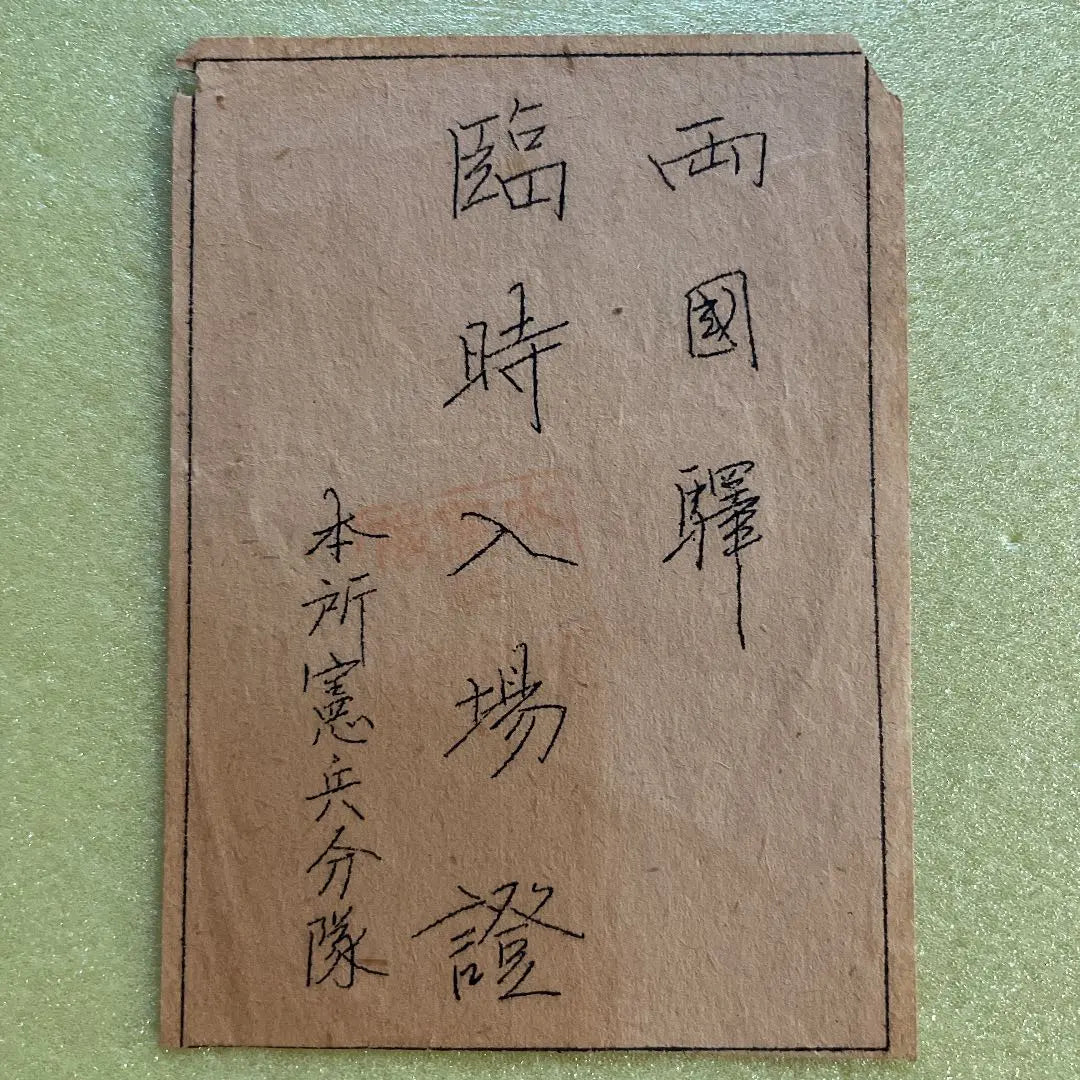 兩國驛
臨時入場證
本所憲兵分隊